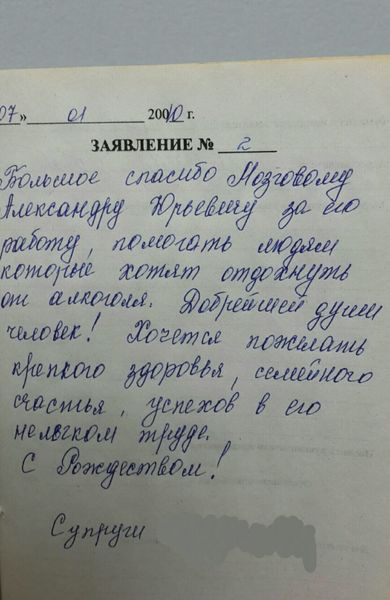 07» 01 20010 г.
ЗАЯВЛЕНИЕ № 2
Большое спасибо Мозговому
Александру Юрьевичу за его
работу, помогать людям
которые хотят отдохнуть
от алкоголя. Добрейшей души
человек! Хочется пожелать
крепкого здоровья, семейного
счастья, успехов в его
нельгком труде.
С Рождеством!
Супруги